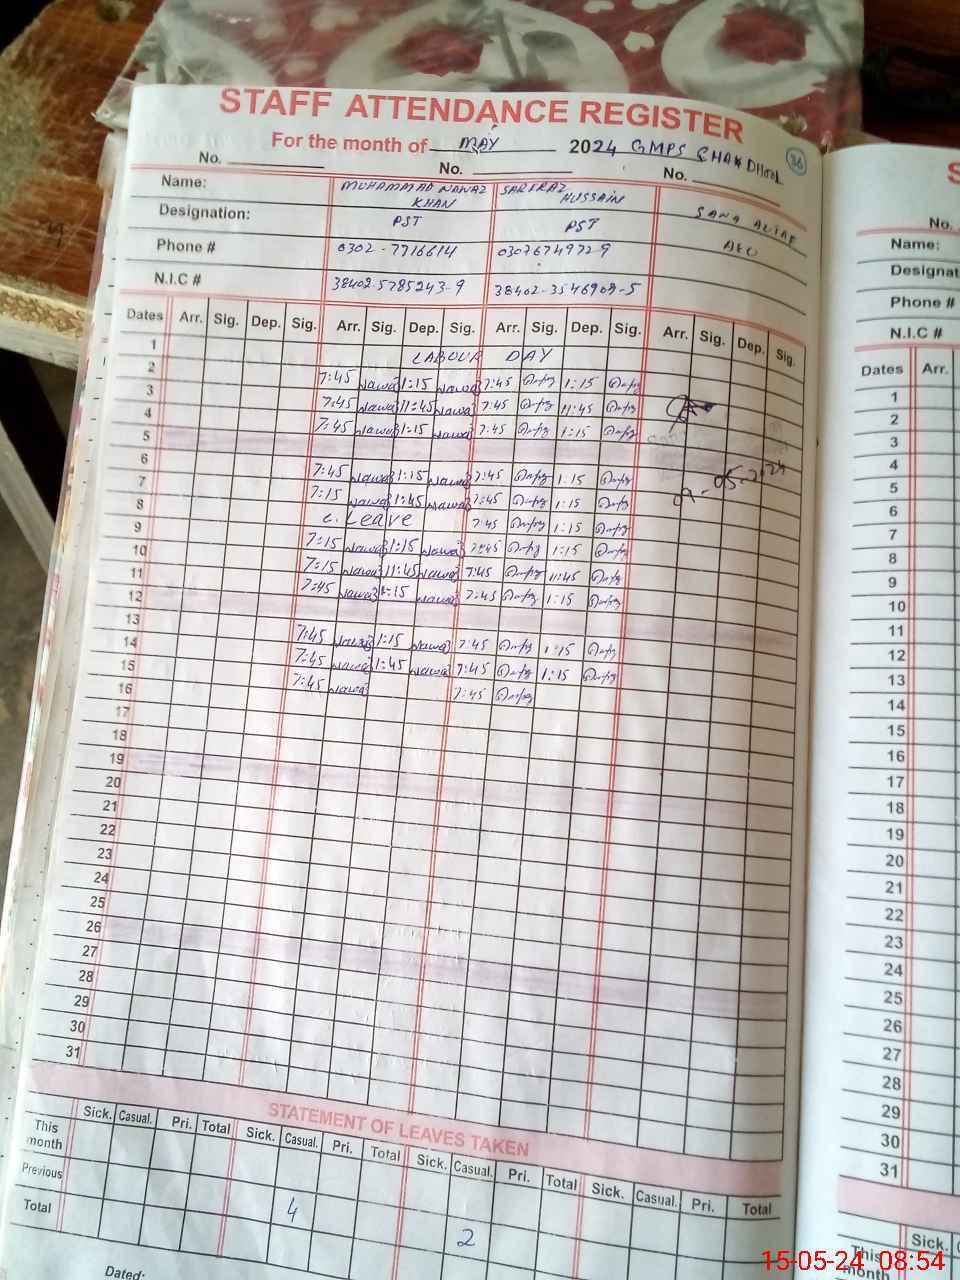 STAFF ATTENDANCE REGISTER
For the month of MAY 2024 GMPS CHAK DHOOL
36
No. No. No.
Name: MUHAMMAD NAWAZ KHAN SARFRAZ HUSSAIN SANA ALTAF
Designation: PST PST AEO
Phone # 0302-7716614 03076749729
N.I.C # 38402-5785243-9 38402-3546909-5
Dates Arr. Sig. Dep. Sig. Arr. Sig. Dep. Sig. Arr. Sig. Dep. Sig. Arr. Sig. Dep. Sig.
1 LABOUR DAY
2 7:45 Nawaz 1:15 Nawaz 7:45 1:15
3 7:45 Nawaz 11:45 Nawaz 7:45 11:45
4 7:45 Nawaz 1:15 Nawaz 7:45 1:15
5
6 7:45 Nawaz 1:15 Nawaz 7:45 1:15
7 7:15 Nawaz 1:45 Nawaz 7:45 1:15
8 C. Leave 7:45 1:15
9 7:15 Nawaz 1:15 Nawaz 7:45 1:15
10 7:15 Nawaz 11:45 Nawaz 7:45 11:45
11 7:45 Nawaz 1:15 Nawaz 7:45 1:15
12
13 7:45 Nawaz 1:15 Nawaz 7:45 1:15
14 7:45 Nawaz 1:45 Nawaz 7:45 1:15
15 7:45 Nawaz 7:45
16
17
18
19
20
21
22
23
24
25
26
27
28
29
30
31
09-05-2024
STATEMENT OF LEAVES TAKEN
Sick. Casual. Pri. Total Sick. Casual. Pri. Total Sick. Casual. Pri. Total Sick. Casual. Pri. Total
This month
Previous
Total 4 2
Dated:
S
No.
Name:
Designat
Phone #
N.I.C #
Dates Arr.
1
2
3
4
5
6
7
8
9
10
11
12
13
14
15
16
17
18
19
20
21
22
23
24
25
26
27
28
29
30
31
Sick.
This month
15-05-24 08:54